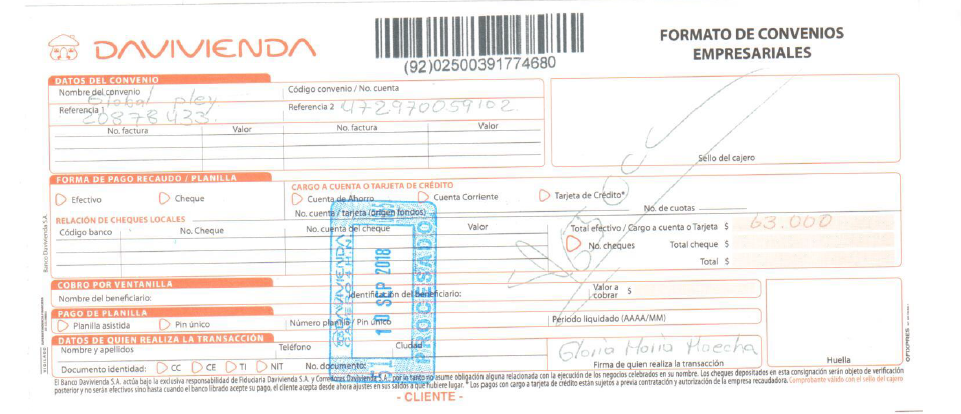 DAVIVIENDA
(92)02500391774680
FORMATO DE CONVENIOS
EMPRESARIALES
DATOS DEL CONVENIO
Nombre del convenio Global pley
Código convenio / No. cuenta
Referencia 1 20878433.
Referencia 2 472970059102
No. factura Valor No. factura Valor
Sello del cajero
FORMA DE PAGO RECAUDO / PLANILLA
Efectivo Cheque
CARGO A CUENTA O TARJETA DE CRÉDITO
Cuenta de Ahorro Cuenta Corriente Tarjeta de Crédito*
No. cuenta / tarjeta (origen fondos) No. de cuotas
RELACIÓN DE CHEQUES LOCALES
Código banco No. Cheque No. cuenta del cheque Valor
Total efectivo / Cargo a cuenta o Tarjeta $ 63.000
No. cheques Total cheque $
Total $
Banco Davivienda S.A.
DAVIVIENDA
10 SEP 2018
PROCESADO
COBRO POR VENTANILLA
Nombre del beneficiario: Identificación del beneficiario: Valor a cobrar $
PAGO DE PLANILLA
Planilla asistida Pin único Número planilla / Pin único Periodo liquidado (AAAA/MM)
DATOS DE QUIEN REALIZA LA TRANSACCIÓN
Nombre y apellidos Teléfono Ciudad
Gloria Maria
Documento identidad: CC CE TI NIT No. documento:
Firma de quien realiza la transacción
Huella
El Banco Davivienda S.A. actúa bajo la exclusiva responsabilidad de Fiduciaria Davivienda S.A. y Corredores Davivienda S.A., por lo tanto no asume obligación alguna relacionada con la ejecución de los negocios celebrados en su nombre. Los cheques depositados en esta consignación serán objeto de verificación
posterior y no serán efectivos sino hasta cuando el banco librado acepte su pago, el cliente acepta desde ahora ajustes en sus saldos a que hubiere lugar. * Los pagos con cargo a tarjeta de crédito están sujetos a previa contratación y autorización de la empresa recaudadora. Comprobante válido con el sello del cajero
- CLIENTE -